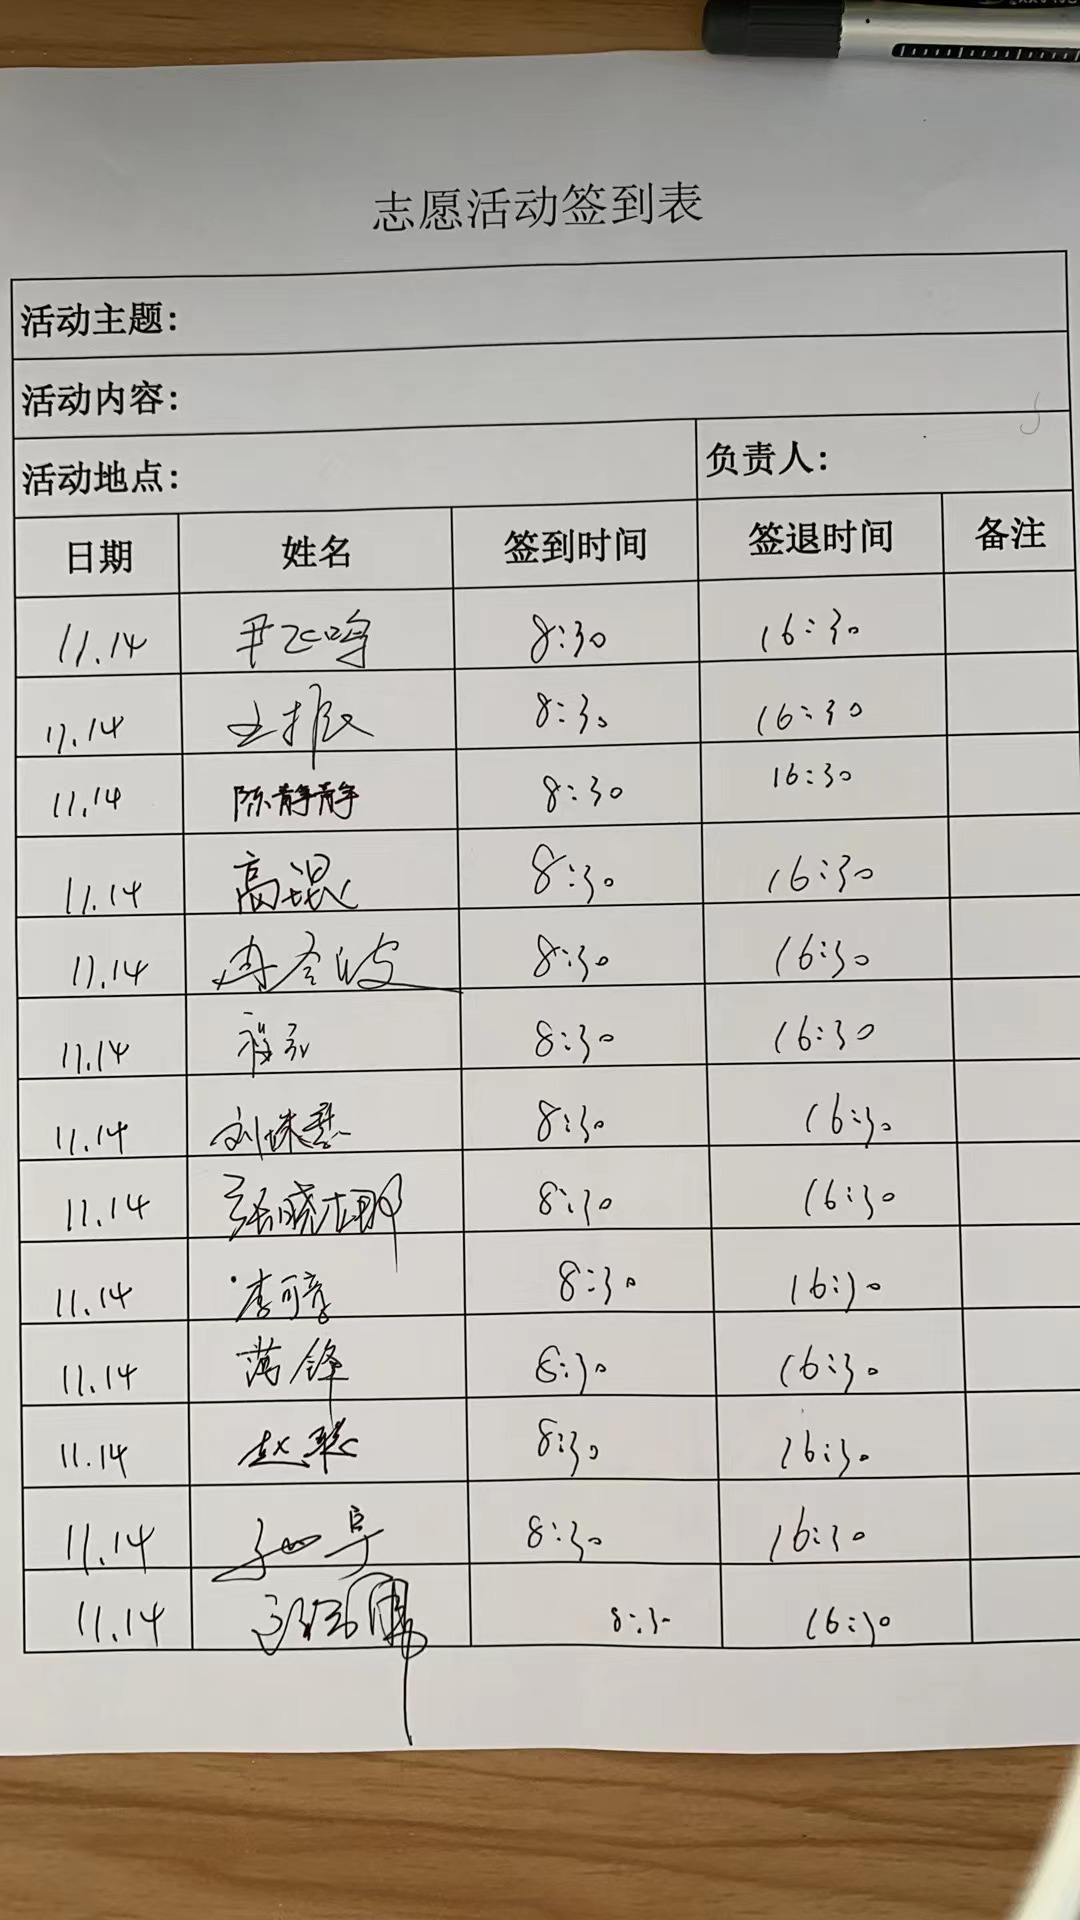 志愿活动签到表
活动主题：
活动内容：
活动地点： 负责人：
日期 姓名 签到时间 签退时间 备注
11.14 尹飞鸣 8:30 16:30
11.14 8:30 16:30
11.14 陈静静 8:30 16:30
11.14 高琨 8:30 16:30
11.14 8:30 16:30
11.14 8:30 16:30
11.14 8:30 16:30
11.14 张晓娜 8:30 16:30
11.14 李可 8:30 16:30
11.14 锋 8:30 16:30
11.14 赵 8:30 16:30
11.14 8:30 16:30
11.14 8:30 16:30